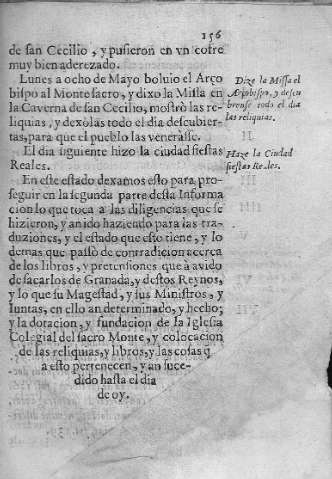 156
de san Cecilio, y pusieron en vn cofre
muy bien aderezado.
Lunes a ocho de Mayo boluio el Arço
bispo al Monte sacro, y dixo la Missa en
la Caverna de san Cecilio, mostrò las re-
liquias, y dexòlas todo el dia descubier-
tas, para que el pueblo las venerasse.
El dia siguiente hizo la ciudad fiestas
Reales.
En este estado dexamos esto para pro-
seguir en la segunda parte desta Informa
cion lo que toca a las diligencias que se
hizieron, y an ido haziendo para las tra-
duziones, y el estado que esto tiene, y lo
demas que passò de contradicion acerca
de los libros, y pretensiones que à avido
de sacarlos de Granada, y destos Reynos,
y lo que su Magestad, y sus Ministros, y
Iuntas, en ello an determinado, y hecho;
y la dotacion, y fundacion de la Iglesia
Colegial del sacro Monte, y colocacion
de las reliquias, y libros, y las cosas q̃
a esto pertenecen, y an suce-
dido hasta el dia
de oy.
Dize la Missa el
Arçobispo, y descu
brense todo el dia
las reliquias.
Haze la Ciudad
fiestas Reales.